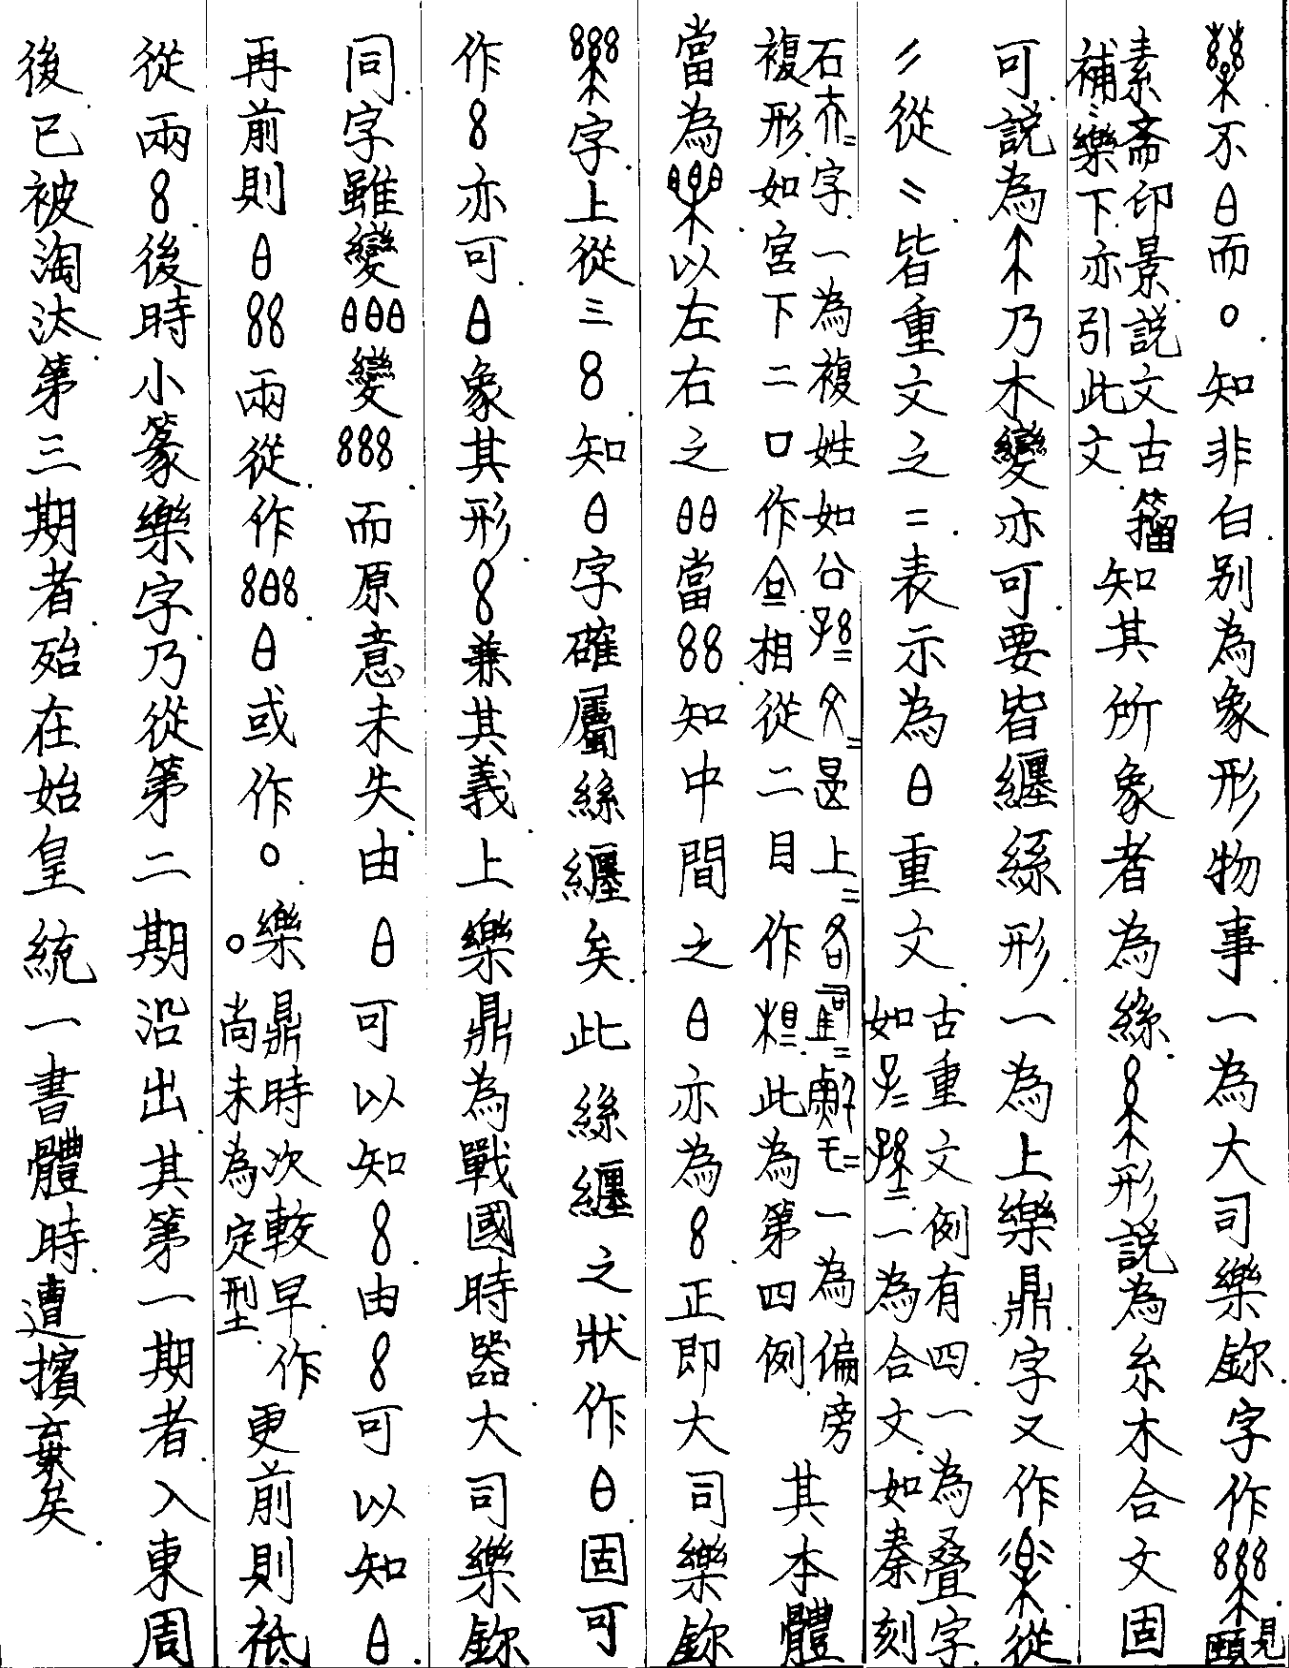 不日而○知非白別為象形物事一為大司樂鉨字作見頤
素斋印景説文古籀補樂下亦引此文知其所象者為絲形説為糸木合文固
可説為乃木變亦可要皆纏絲形一為上樂鼎字又作從
〃從〃皆重文之二表示為日重文古重文例有四一為叠字如子二孫二一為合文如秦刻
石夳二字一為複姓如公孫二上二司馬二鮮于二一為偏旁複形如宮下二口作相從二目作此為第四例其本體
當為以左右之日日當88知中間之日亦為8正即大司樂鉨
字上從三8知日字確屬絲纏矣此絲纏之狀作日固可
作8亦可日象其形8兼其義上樂鼎為戰國時器大司樂鉨
同字雖變日日日變888而原意未失由日可以知8由8可以知日
再前則日88兩從作8日8日或作○樂鼎時次較早作○尚未為定型更前則祗
從兩8後時小篆樂字乃從第二期沿出其第一期者入東周
後已被淘汰第三期者殆在始皇統一書體時遭擯棄矣